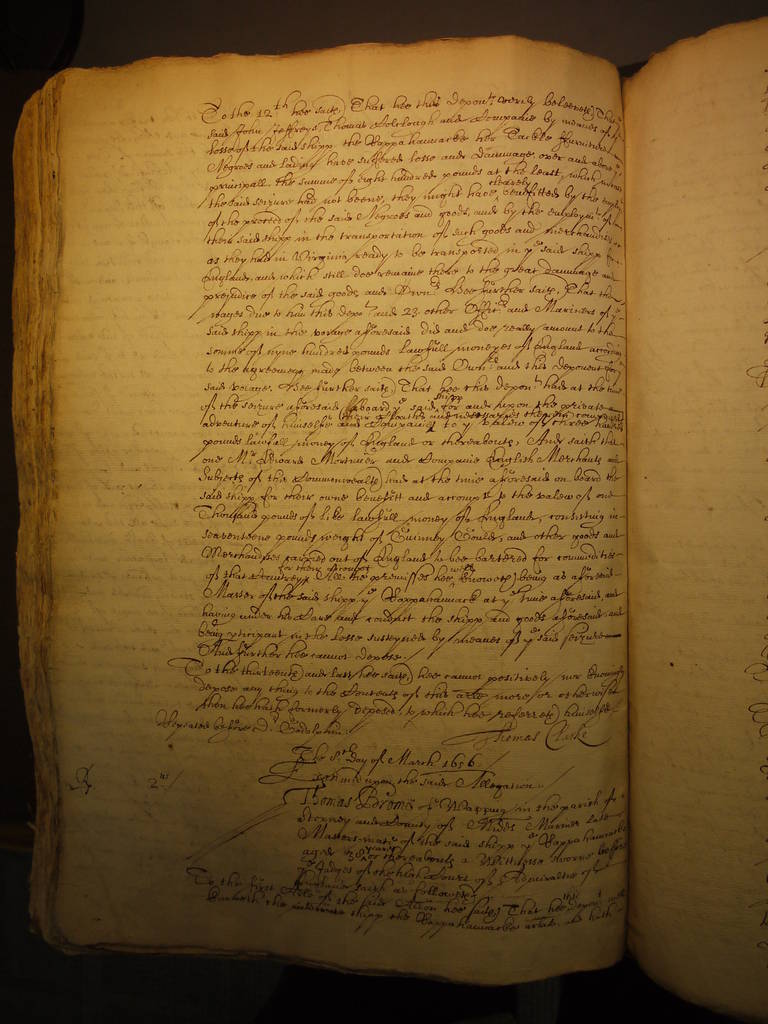 To the 12th hee saith, That hee this deponent verily beleeveth The
said John Jeffreys Thomas Colclough and Companie by meanes of
losse of the said shipp the Rappahannacke her Tackle ffurniture
Negroes and lading have suffered losse and dammage over and above
principall the summe of eight hundred pounds at the least, which
the said seizure had not beene, they might have clearely benefitted by the
of the proceed of the said Negroes and goods, and by the employment of
their said shipp in the transportation of such goods and merchandizes
as they had in Virginia ready to be transported in ye said shipp for
England, and which still doe remaine there to the great dammage and
prejudice of the said goods and Owners Hee further saith, That the
wages due to him this depot and 23 other Officers and Mariners of ye
said shipp in the voyage aforesaid did and doe really amount to the
somme of nyne hundred pounds lawfull moneyes of England according
to the agreement made between the said Owners and this deponent for ye
said voiage. Hee further saith That hee this deponent had at the time
of the seizure aforesaid aboard ye said shipp for and upon the private
adventure of himselfe and Companie to ye valew of three hundred
pounds lawfull money of England or thereabouts, And saith that
one Mr Mortimer and Companie English Merchants and
Subjects of this Commonwealth had at the time aforesaid on board the
said shipp for their owne benefitt and accompt to the valew of one
Thousand pounds of like lawfull money of England, consisting in
seaventeene pounds weight of Guinney Gould, and other goods and
Merchandizes carried out of England to bee bartered for commodities
of that Countrey for their accompt All the premisses hee knoweth being as aforesaid
Master of the said shipp ye Rappahannack at ye time aforesaid, and
having under his Care and conduct the shipp and goods aforesaid, and
being participant in the losse susteyned by meanes of ye said seizure
And further hee cannot depose.
To the thirteenth and last hee saith, hee cannot positively nor knowingly
depose any thing to the Contents of this arle more or otherwise
then hee hath formerly deposed, to which hee referreth himselfe
Repeated before Dr Godolphin.
Thomas Clarke
The 5th Day of March 1656
Examined upon the said Allegation.
2us
Thomas Bromé of Wapping in the parish of
Stepney and County of Middx Mariner late
Masters mate of the said shipp ye Rappahannack
aged yeares or thereabouts a Wittnesse sworne before
ye Judges of the high Court of ye Admiraltie of
England saith as followeth
To the first Arle of the said Allon hee saith That hee this depont well
knoweth the shipp the Rappahannacke arlate, and hath